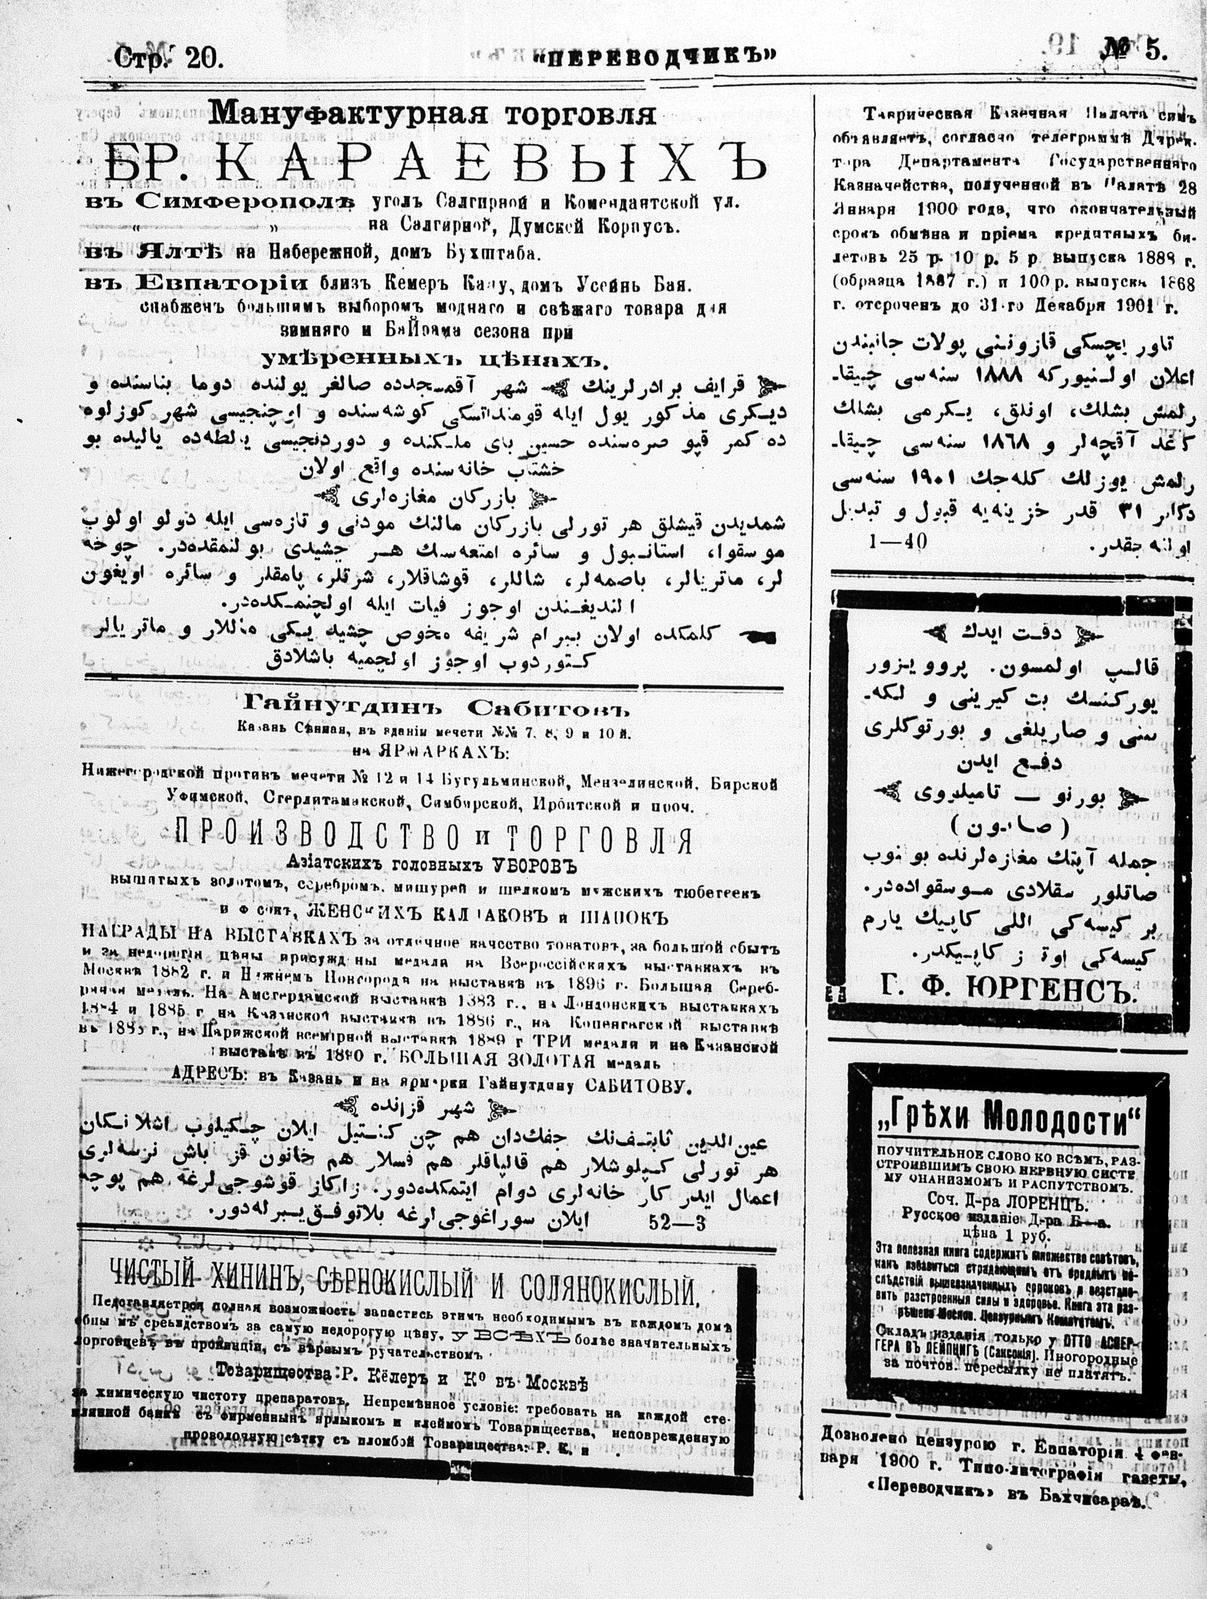 Стр. 20.
"ПЕРЕВОДЧИКЪ"
№ 5.
Мануфактурная торговля
БР. КАРАЕВЫХЪ
въ Симферополѣ уголъ Салгирной и Комендантской ул.
„ „ на Салгирной, Думской Корпусъ.
въ Ялтѣ на Набережной, домъ Бухштаба.
въ Евпаторіи близъ Кемеръ Капу, домъ Усеинъ Бая.
снабженъ большимъ выборомъ моднаго и свѣжаго товара для
зимняго и Байрама сезона при
умѣренныхъ цѣнахъ.
قرایف برادرلرینك شهر آقمسجدده صالغر یولنده دوما بناسنده و
دیگری مذکور یول ایله قومنداتسکی کوشه‌سنده و اوچنجیسی شهر کوزلوه
ده کمر قپو صره‌سنده حسین بای ملکنده و دوردنجیسی یالطه‌ده یالیده بو
خشتاب خانه‌سنده واقع اولان
بازرکان مغازه‌لری
شمدیدن قیشلق هر تورلی بازرکان مالنك مودنی و تازه‌سی ایله دولو اولوب
موسقوا، استانبول و سائره امتعه‌سك هر چشیدی بولنمقده‌در. چوخه
لر، ماتریالر، باصمه‌لر، شاللر، قوشاقلار، شرتلر، پامقلر و سائره اویغون
الندیغندن اوجوز فیات ایله اولچنمکده‌در.
کلمکده اولان بیرام شریفه مخوص چشید یکی ماللار و ماتریالر
کتوردوب اوجوز اولچمیه باشلادق
Гайнутдинъ Сабитовъ
Казань Сѣнная, въ зданіи мечети №№ 7, 8, 9 и 10 й.
на ЯРМАРКАХЪ:
Нижегородской противъ мечети № 12 и 14 Бугульминской, Мензелинской, Бирской
Уфимской, Стерлитамакской, Симбирской, Ирбитской и проч.
ПРОИЗВОДСТВО и ТОРГОВЛЯ
Азіатскихъ головныхъ УБОРОВЪ
вышитыхъ золотомъ, серебромъ, мишурей и шелкомъ мужскихъ тюбетеекъ
и фесокъ, ЖЕНСКИХЪ КАЛПАКОВЪ и ШАПОКЪ
НАГРАДЫ НА ВЫСТАВКАХЪ за отличное качество товаровъ, за большой сбытъ
и за недорогія цѣны присуждены медали на Всероссійскихъ выставкахъ въ
Москвѣ 1882 г. и Нижнемъ Новгорода на выставкѣ въ 1896 г. Большая Сереб-
ряная медаль. На Амстердамской выставкѣ 1883 г., на Лондонскихъ выставкахъ
1884 и 1885 г. на Казанской выставкѣ въ 1886 г., на Копенгагской выставкѣ
въ г., на Парижской всемірной выставкѣ 1889 г ТРИ медали и на Казанской
выставкѣ въ 1890 г. БОЛЬШАЯ ЗОЛОТАЯ медаль
АДРЕСЪ: въ Казань и на ярмарки Гайнутдину САБИТОВУ.
شهر قزانده
عین‌الدین ثابتفنك جفك‌دان هم چن کنتیل ایلان چکیلوب اشلانکان
هر تورلی کیپلوشلار هم قالپاقلر هم فسلار هم خانون قز باش نرسه‌لری
اعمال ایدر کار خانه‌لری دوام ایتمکده‌دور. زاکاز قوشوجی‌لرغه هم پوچه
ایلان سوراغوجی‌لرغه بلاتوفق ییبرله‌دور. 52—3
ЧИСТЫЙ ХИНИНЪ, СѢРНОКИСЛЫЙ И СОЛЯНОКИСЛЫЙ.
Педставляется полная возможность запастись этимъ необходимымъ въ каждомъ домѣ
средствомъ за самую недорогую цѣну, у ВСѢХЪ болѣе значительныхъ
торговцевъ въ провинціи, съ вѣрнымъ ручательствомъ
Товарищества Р. Кёлеръ и К° въ Москвѣ
за химическую чистоту препаратовъ. Непремѣнное условіе: требовать на каждой сте-
клянной банкѣ съ фирменнымъ ярлыкомъ и клеймомъ Товарищества, неповрежденную
проволочную сѣтку съ пломбой Товарищества: Р. К. и
Таврическая Казенная Палата симъ
объявляетъ, согласно телеграммѣ Дирек-
тора Департамента Государственнаго
Казначейства, полученной въ Палатѣ 28
Января 1900 года, что окончательный
срокъ обмѣна и пріема кредитныхъ би-
летовъ 25 р. 10 р. 5 р. выпуска 1888 г.
(образца 1887 г.) и 100 р. выпуска 1868
г. отсроченъ до 31-го Декабря 1901 г.
تاوریچسکی قازوننی پولات جانبندن
اعلان اولنیورکه ۱۸۸۸ سنه‌سی چیقا-
رلمش بشلك، اونلق، یکرمی بشلك
کاغد آقچه‌لر و ۱۸۶۸ سنه‌سی چیقا-
رلمش یوزلك کله‌جك ۱۹۰۱ سنه‌سی
دکابر ۳۱ قدر خزینه‌یه قبول و تبدیل
اولنه‌جقدر. 1—40
دقت ایدك
قالپ اولمسون. پروویزور
یورکنسك بت کیرینی و لکه-
سنی و صاریلغی و بورتوکلری
دفع ایدن
بورنو — تامیلدوی
(صابون)
جمله آپتك مغازه‌لرنده بولنوب
صاتلور سقلادی موسقواده‌در.
بر کیسه‌کی اللی کاپیك یارم
کیسه‌کی اوتوز کاپیکدر.
Г. Ф. ЮРГЕНСЪ.
„Грѣхи Молодости“
ПОУЧИТЕЛЬНОЕ СЛОВО КО ВСѢМЪ, РАЗ-
СТРОИВШИМЪ СВОЮ НЕРВНУЮ СИСТЕ
МУ ОНАНИЗМОМЪ И РАСПУТСТВОМЪ.
Соч. Д-ра ЛОРЕНЦЪ.
Русское изданіе Д-ра Б—а.
цѣна 1 руб.
Эта полезная книга содержитъ множество совѣтовъ,
какъ избавиться страдающимъ отъ вредныхъ по-
слѣдствій вышеозначенныхъ пороковъ и возстано-
вить разстроенныя силы и здоровье. Книга эта раз-
рѣшена Москов. Цензурнымъ Комитетомъ.
Складъ изданія только у ОТТО АСПЕР-
ГЕРА ВЪ ЛЕЙПЦИГѢ (Саксонія). Иногородные
за почтов. пересылку не платятъ.
Дозволено цензурою г. Евпаторія 4 фев-
раря 1900 г. Типо-литографія газеты,
«Переводчикъ» въ Бахчисараѣ.